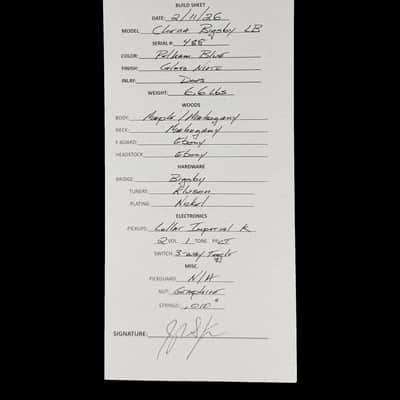 BUILD SHEET
DATE: 2/11/26
MODEL Chena Bigsby LB
SERIAL #: 488
COLOR: Pelham Blue
FINISH: Gloss Nitro
INLAY: Dots
WEIGHT: 6.6 Lbs
WOODS
BODY: Maple / Mahogany
NECK: Mahogany
F-BOARD: Ebony
HEADSTOCK: Ebony
HARDWARE
BRIDGE: Bigsby
TUNERS: Kluson
PLATING: Nickel
ELECTRONICS
PICKUPS: Lollar Imperial
2 VOL 1 TONE
SWITCH: 3-way Toggle
MISC.
PICKGUARD: N/A
NUT: Graphite
STRINGS: .010"
SIGNATURE: